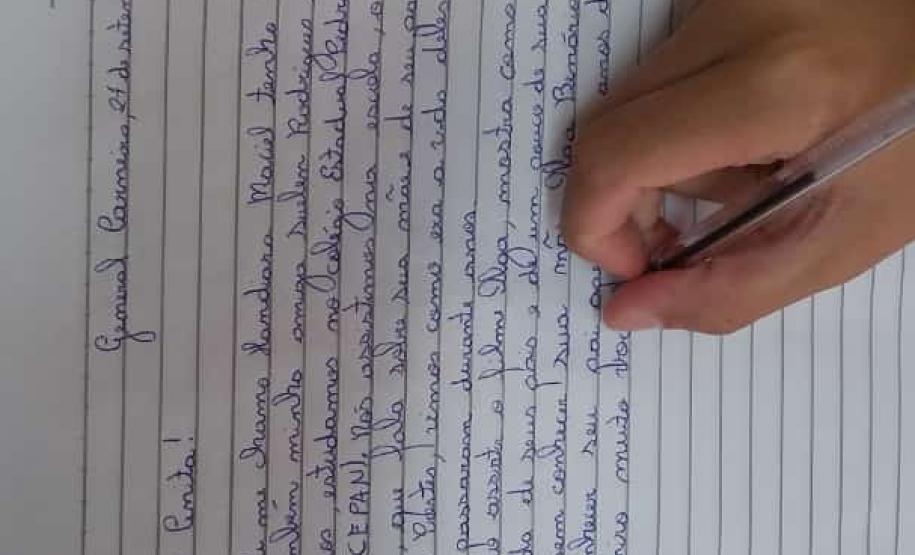 General Carneiro, 21 de setem
Anita!
me chamo Sandra Maciel tenho
minha amiga Suelen Rodrigues
estudamos no Colégio Estadual Pedro
CEPAN). Nós assistimos na escola, o
que fala sobre sua mãe e de seu pa
vimos como era a vida deles
passaram durante anos.
assistir o filme Olga, mostra como
da de seus pais e de um pouco de sua
em conhecer sua mã Olga Benário
nhecer seu pai ap anos d
muito